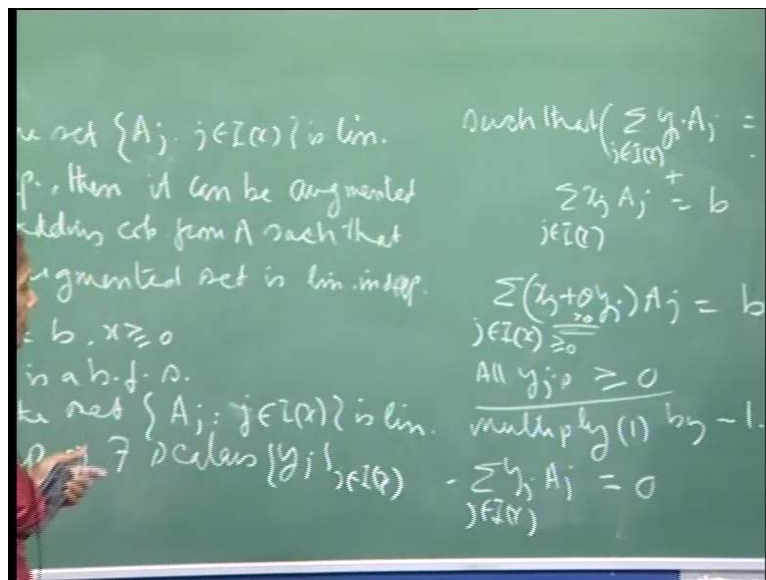 set {A_j : j∈I(x)} is lin.
p., then it can be augmented
adding cols from A such that
augmented set is lin. indep.
= b, x ≥ 0
is a b.f.s.
set {A_j : j∈I(x)} is lin.
∃ scalars {y_j}_{j∈I(x)}
such that ( ∑_{j∈I(x)} y_j A_j =
∑_{j∈I(x)} x_j A_j = b
+
∑_{j∈I(x)} (x_j + θ y_j) A_j = b
≥0
All y_j's ≥ 0
multiply (1) by -1.
- ∑_{j∈I(x)} y_j A_j = 0